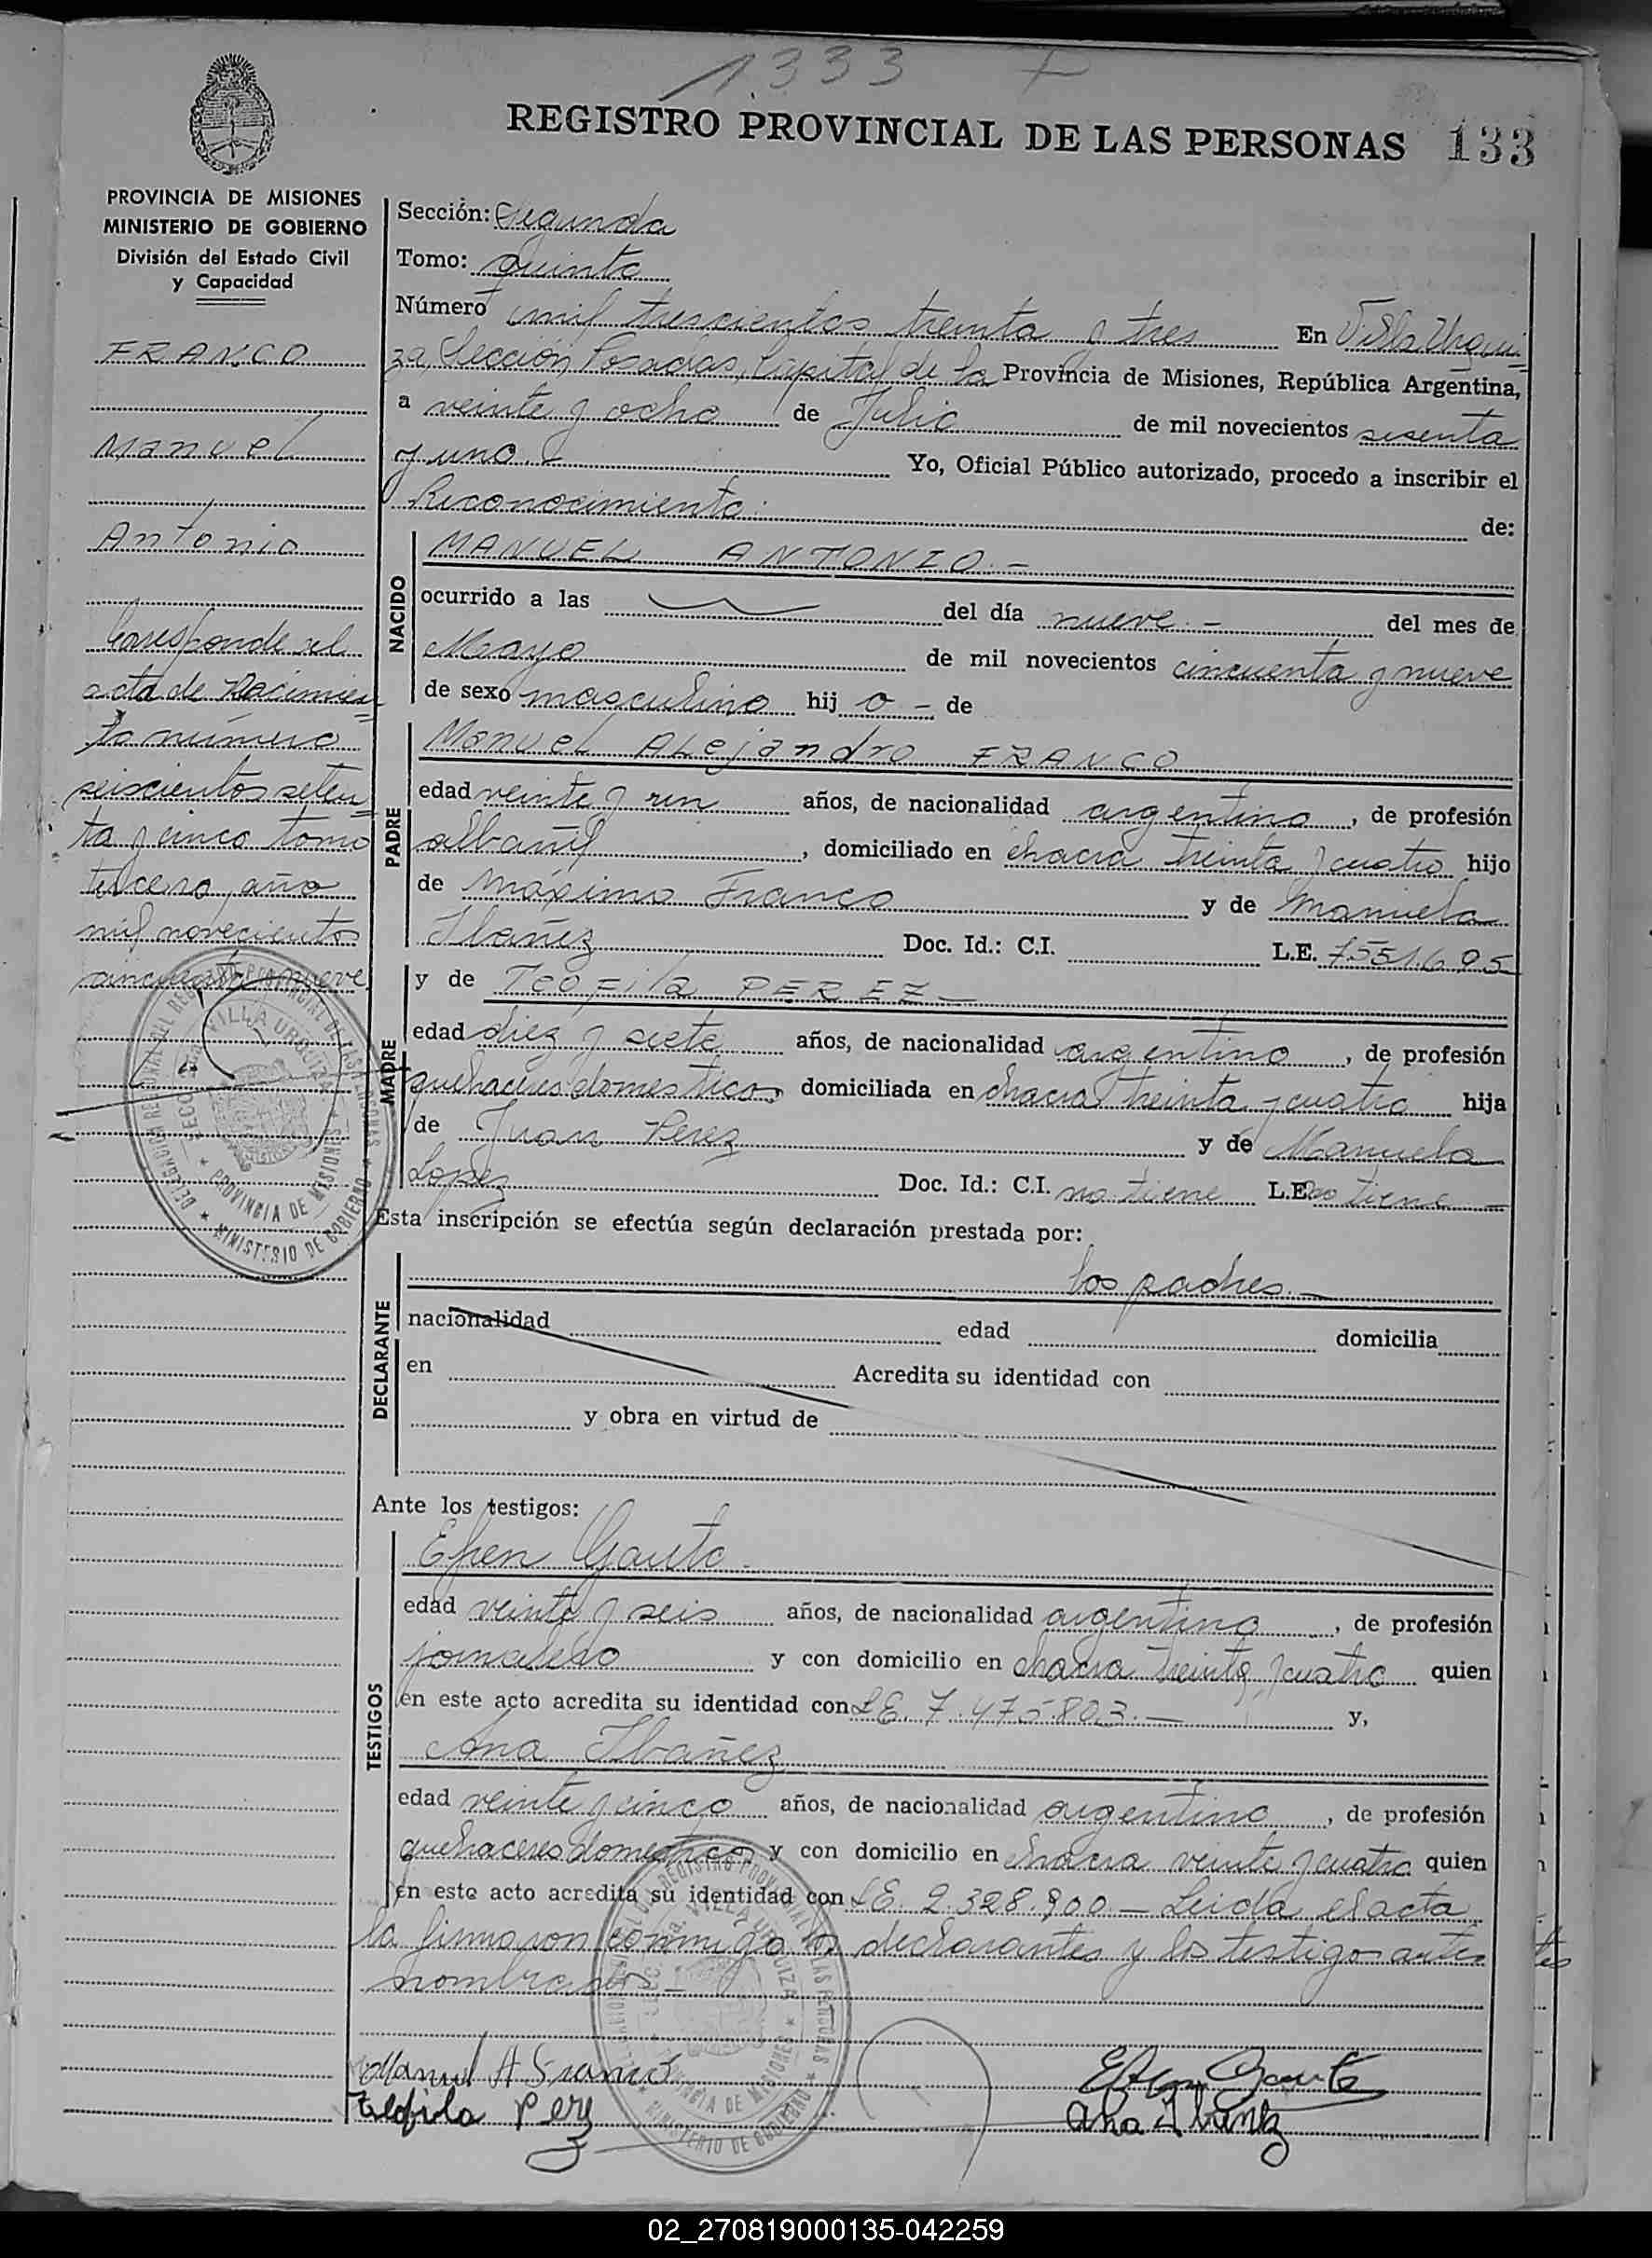 1333
REGISTRO PROVINCIAL DE LAS PERSONAS 133
PROVINCIA DE MISIONES
MINISTERIO DE GOBIERNO
División del Estado Civil
y Capacidad
FRANCO
Manuel
Antonio
Corresponde al
acta de Nacimien
to número
seiscientos seten
ta y cinco tomo
tercero, año
mil novecientos
cincuenta y nueve
Sección: Segunda
Tomo: quinto
Número mil trescientos treinta y tres En Villa Urqui
za, Sección Posadas, Capital de la Provincia de Misiones, República Argentina,
a veinte y ocho de Julio de mil novecientos sesenta
y uno. Yo, Oficial Público autorizado, procedo a inscribir el
Reconocimiento: de:
NACIDO
MANUEL ANTONIO.-
ocurrido a las del día nueve.- del mes de
Mayo de mil novecientos cincuenta y nueve
de sexo masculino hij o - de
PADRE
Manuel Alejandro FRANCO
edad veinte y un años, de nacionalidad argentino, de profesión
albañil, domiciliado en chacra treinta y cuatro hijo
de Máximo Franco y de Manuela
Ibañez Doc. Id.: C.I. L.E. 7551695
MADRE
y de Teofila PEREZ -
edad diez y siete años, de nacionalidad argentino, de profesión
quehaceres domesticos domiciliada en chacra treinta y cuatro hija
de Juan Perez y de Manuela
Lopez Doc. Id.: C.I. no tiene L.E. no tiene -
Esta inscripción se efectúa según declaración prestada por:
DECLARANTE
los padres.-
nacionalidad edad domicilia
en Acredita su identidad con
y obra en virtud de
Ante los testigos:
TESTIGOS
Efren Gauto
edad veinte y seis años, de nacionalidad argentino, de profesión
jornalero y con domicilio en chacra treinta y cuatro quien
en este acto acredita su identidad con LE. 7.475.803.- y,
Ana Ibañez
edad veinte y cinco años, de nacionalidad argentino, de profesión
quehaceres domestico y con domicilio en chacra veinte y cuatro quien
en este acto acredita su identidad con LE. 2.328.900.- Leida el acta
la firmaron conmigo los declarantes y los testigos antes
nombrados.-
Manuel A Franco
Teofila Perez
Efren Gauto
Ana Ibañez
VILLA URQUIZA
PROVINCIA DE MISIONES
MINISTERIO DE GOBIERNO
VILLA URQUIZA
PROVINCIA DE MISIONES
MINISTERIO DE GOBIERNO
02_270819000135-042259